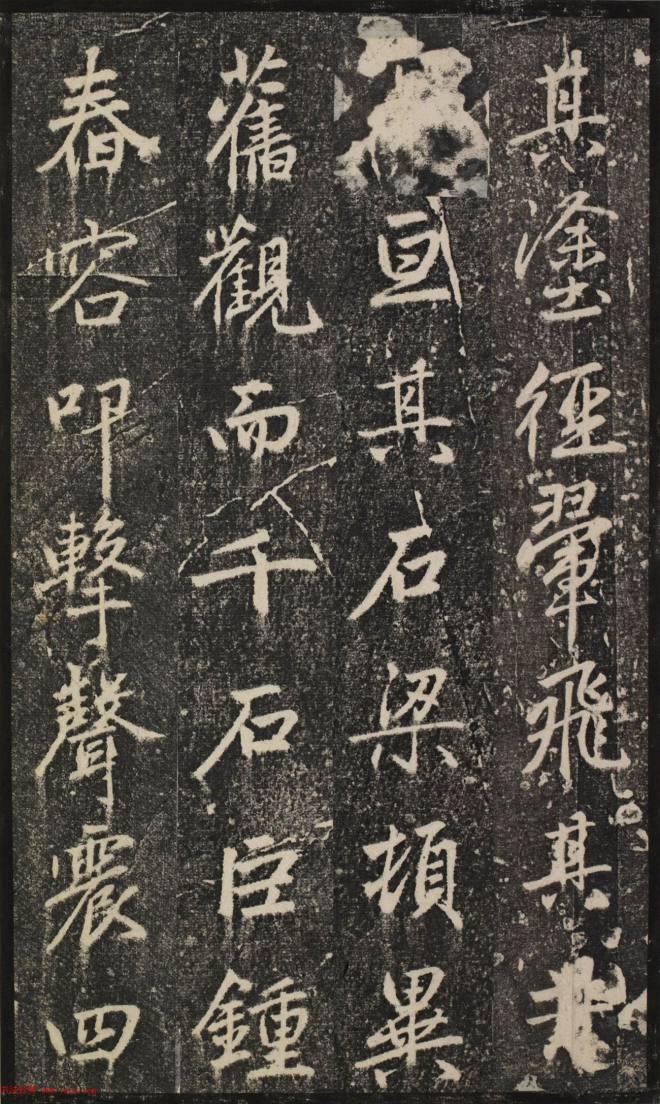 其塗徑翬飛其
亘其石梁頓異
舊觀而千石巨鍾
舂容叩擊聲震四